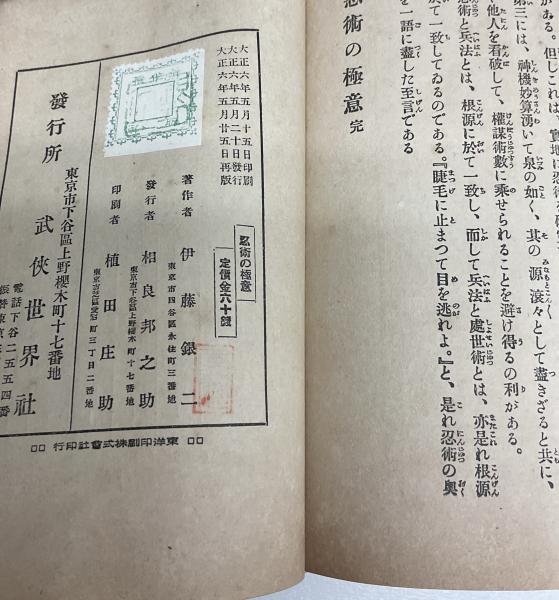 がある。但しこれは、實地に忍術を
第三には、神機妙算湧いて泉の如く、其の源滾々として盡きざると共に、
他人を看破して、權謀術數に乘せられることを避け得るの利がある。
忍術と兵法とは、根源に於て一致し、而して兵法と處世術とは、亦是れ根源
於て一致してゐるのである。『睫毛に止まつて目を逃れよ。』と、是れ忍術の奧
を一語に盡した至言である
忍術の極意 完
忍術の極意
定價金六十錢
大正六年五月十五日印刷
大正六年五月二十日發行
大正六年五月廿五日再版
著作者 伊藤銀二
東京市四谷區永住町三番地
發行者 相良邦之助
東京市下谷區上野櫻木町十七番地
印刷者 植田庄助
町三丁目二番地
東京市下谷區上野櫻木町十七番地
發行所 武俠世界社
電話下谷二五五四番
東洋印刷株式會社印行